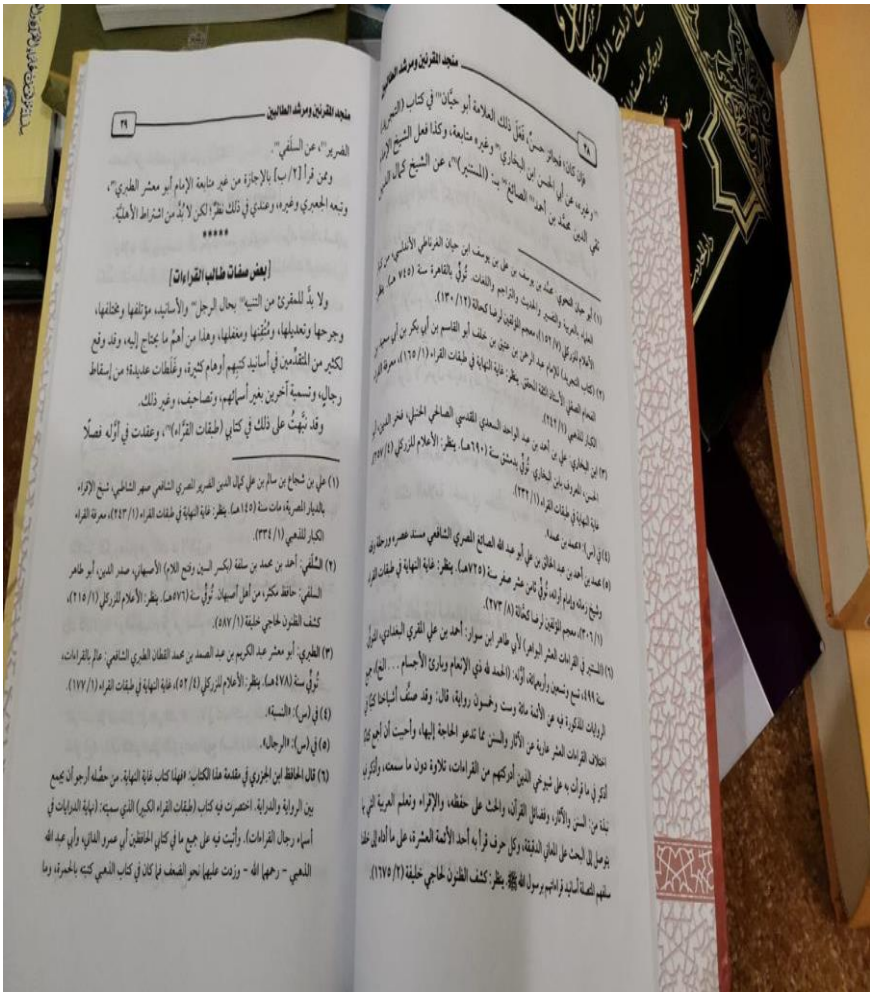 منجد المقرئين ومرشد الطالبين
٢٨
فإن كان؛ فجائز حسنٌ، فَعَلَ ذلك العلامة أبو حيَّان(١) في كتاب (التجريد)
(٢) وغيره، عن أبي الحسن ابن البخاري(٣) وغيره متابعة، وكذا فعل الشيخ الإمام
تقي الدين محمَّد بن أحمد(٤) الصائغ(٥) بـ: (المستنير)(٦)، عن الشيخ كمال الدين
(١) أبو حيان النحوي: محمَّد بن يوسف بن علي بن يوسف ابن حيان الغرناطي الأندلسي، من كبار
العلماء بالعربية والتفسير والحديث والتراجم واللغات. تُوفِّي بالقاهرة سنة (٧٤٥ هـ). ينظر:
الأعلام للزركلي (١٥٢/٧)، معجم المؤلفين لرضا كحالة (١٣٠/١٢).
(٢) (كتاب التجريد) للإمام عبد الرحمن بن عتيق بن خلف أبو القاسم بن أبي بكر بن أبي سعيد بن
الفحام الصقلي الأستاذ الثقة المحقق. ينظر: غاية النهاية في طبقات القراء (١٦٥/١)، معرفة القراء
الكبار للذهبي (٢٤٢/١).
(٣) ابن البخاري: علي بن أحمد بن عبد الواحد السعدي المقدسي الصالحي الحنبلي، فخر الدين، أبو
الحسن، المعروف بابن البخاري. تُوفِّي بدمشق سنة (٦٩٠هـ). ينظر: الأعلام للزركلي (٢٥٧/٤)،
غاية النهاية في طبقات القراء (٢٣٢/١).
(٤) في (س): «محمد بن محمد».
(٥) محمد بن أحمد بن عبد الخالق بن علي أبو عبد الله الصائغ المصري الشافعي مسند عصره ورحلة وقته
وشيخ زمانه وإمام أوانه، تُوفِّي ثامن عشر صفر سنة (٧٢٥هـ). ينظر: غاية النهاية في طبقات القراء
(٣٠٦/١)، معجم المؤلفين لرضا كحَّالة (٢٧٣/٨).
(٦) (المستنير في القراءات العشر البواهر) لأبي طاهر ابن سوار: أحمد بن علي المقري البغدادي، المتوفَّى
سنة ٤٩٩، تسع وتسعين وأربعمائة، أوَّله: (الحمد لله ذي الإنعام وبارئ الأجسام ... الخ)، جمع
الروايات المذكورة فيه عن الأئمة مائة وست وخمسون رواية، قال: وقد صنَّف أشياخنا كتبًا في
اختلاف القراءات العشر عارية عن الآثار والسنن مما تدعو الحاجة إليها، وأحببت أن أجمع كتابًا
أذكر في ما قرأت به على شيوخي الذين أدركتهم من القراءات، تلاوة دون ما سمعته، وأذكر فيه
نبذة من: السنن والآثار، وفضائل القرآن، والحث على حفظه، والإقراء وتعلم العربية التي بها
يتوصل إلى البحث على المعاني الدقيقة، وكل حرف قرأ به أحد الأئمة العشرة، على ما أداه إلى خلفه
سلفهم المتصلة أسانيد قراءاتهم برسول الله ﷺ. ينظر: كشف الظنون لحاجي خليفة (١٦٧٥/٢).
منجد المقرئين ومرشد الطالبين
٢٩
الضرير(١)، عن السِلَفي(٢).
وممن قرأ [٢/ب] بالإجازة من غير متابعة الإمام أبو معشر الطبري(٣)،
وتبعه الجعبري وغيره، وعندي في ذلك نظرٌ؛ لكن لا بُدَّ من اشتراط الأهليَّة.
*****
[بعض صفات طالب القراءات]
ولا بدَّ للمقرئ من التنبيه(٤) بحال الرجل(٥) والأسانيد، مؤتلفها ومختلفها،
وجرحها وتعديلها، ومُتقِنها ومغفلها، وهذا من أهمِّ ما يحتاج إليه، وقد وقع
لكثير من المتقدِّمين في أسانيد كتبهم أوهام كثيرة، وغَلَطات عديدة؛ من إسقاط
رجالٍ، وتسمية آخرين بغير أسمائهم، وتصاحيف، وغير ذلك.
وقد نبَّهتُ على ذلك في كتابي (طبقات القرَّاء)(٦)، وعقدت في أوَّله فصلًا
(١) علي بن شجاع بن سالم بن علي كمال الدين الضرير المصري الشافعي صهر الشاطبي، شيخ الإقراء
بالديار المصرية، مات سنة (١٤٥هـ). ينظر: غاية النهاية في طبقات القراء (٢٤٣/١)، معرفة القراء
الكبار للذهبي (٣٣٤/١).
(٢) السِّلَفي: أحمد بن محمد بن سلفة (بكسر السين وفتح اللام) الأصبهاني، صدر الدين، أبو طاهر
السلفي: حافظ مكثر، من أهل أصبهان. تُوفِّي سنة (٥٧٦هـ). ينظر: الأعلام للزركلي (٢١٥/١)،
كشف الظنون لحاجي خليفة (٥٨٧/١).
(٣) الطبري: أبو معشر عبد الكريم بن عبد الصمد بن محمد القطان الطبري الشافعي: عالم بالقراءات،
تُوفِّي سنة (٤٧٨هـ). ينظر: الأعلام للزركلي (٥٢/٤)، غاية النهاية في طبقات القراء (١٧٧/١).
(٤) في (س): «النسبة».
(٥) في (س): «الرجال».
(٦) قال الحافظ ابن الجزري في مقدمة هذا الكتاب: «فهذا كتاب غاية النهاية، من حصَّله أرجو أن يجمع
بين الرواية والدراية. اختصرت فيه كتاب (طبقات القراء الكبير) الذي سميته: (نهاية الدرايات في
أسماء رجال القراءات). وأتيت فيه على جميع ما في كتابي الحافظين أبي عمرو الداني، وأبي عبد الله
الذهبي - رحمهما الله - وزدت عليهما نحو الضعف فما كان في كتاب الذهبي كتبته بالحمرة، وما